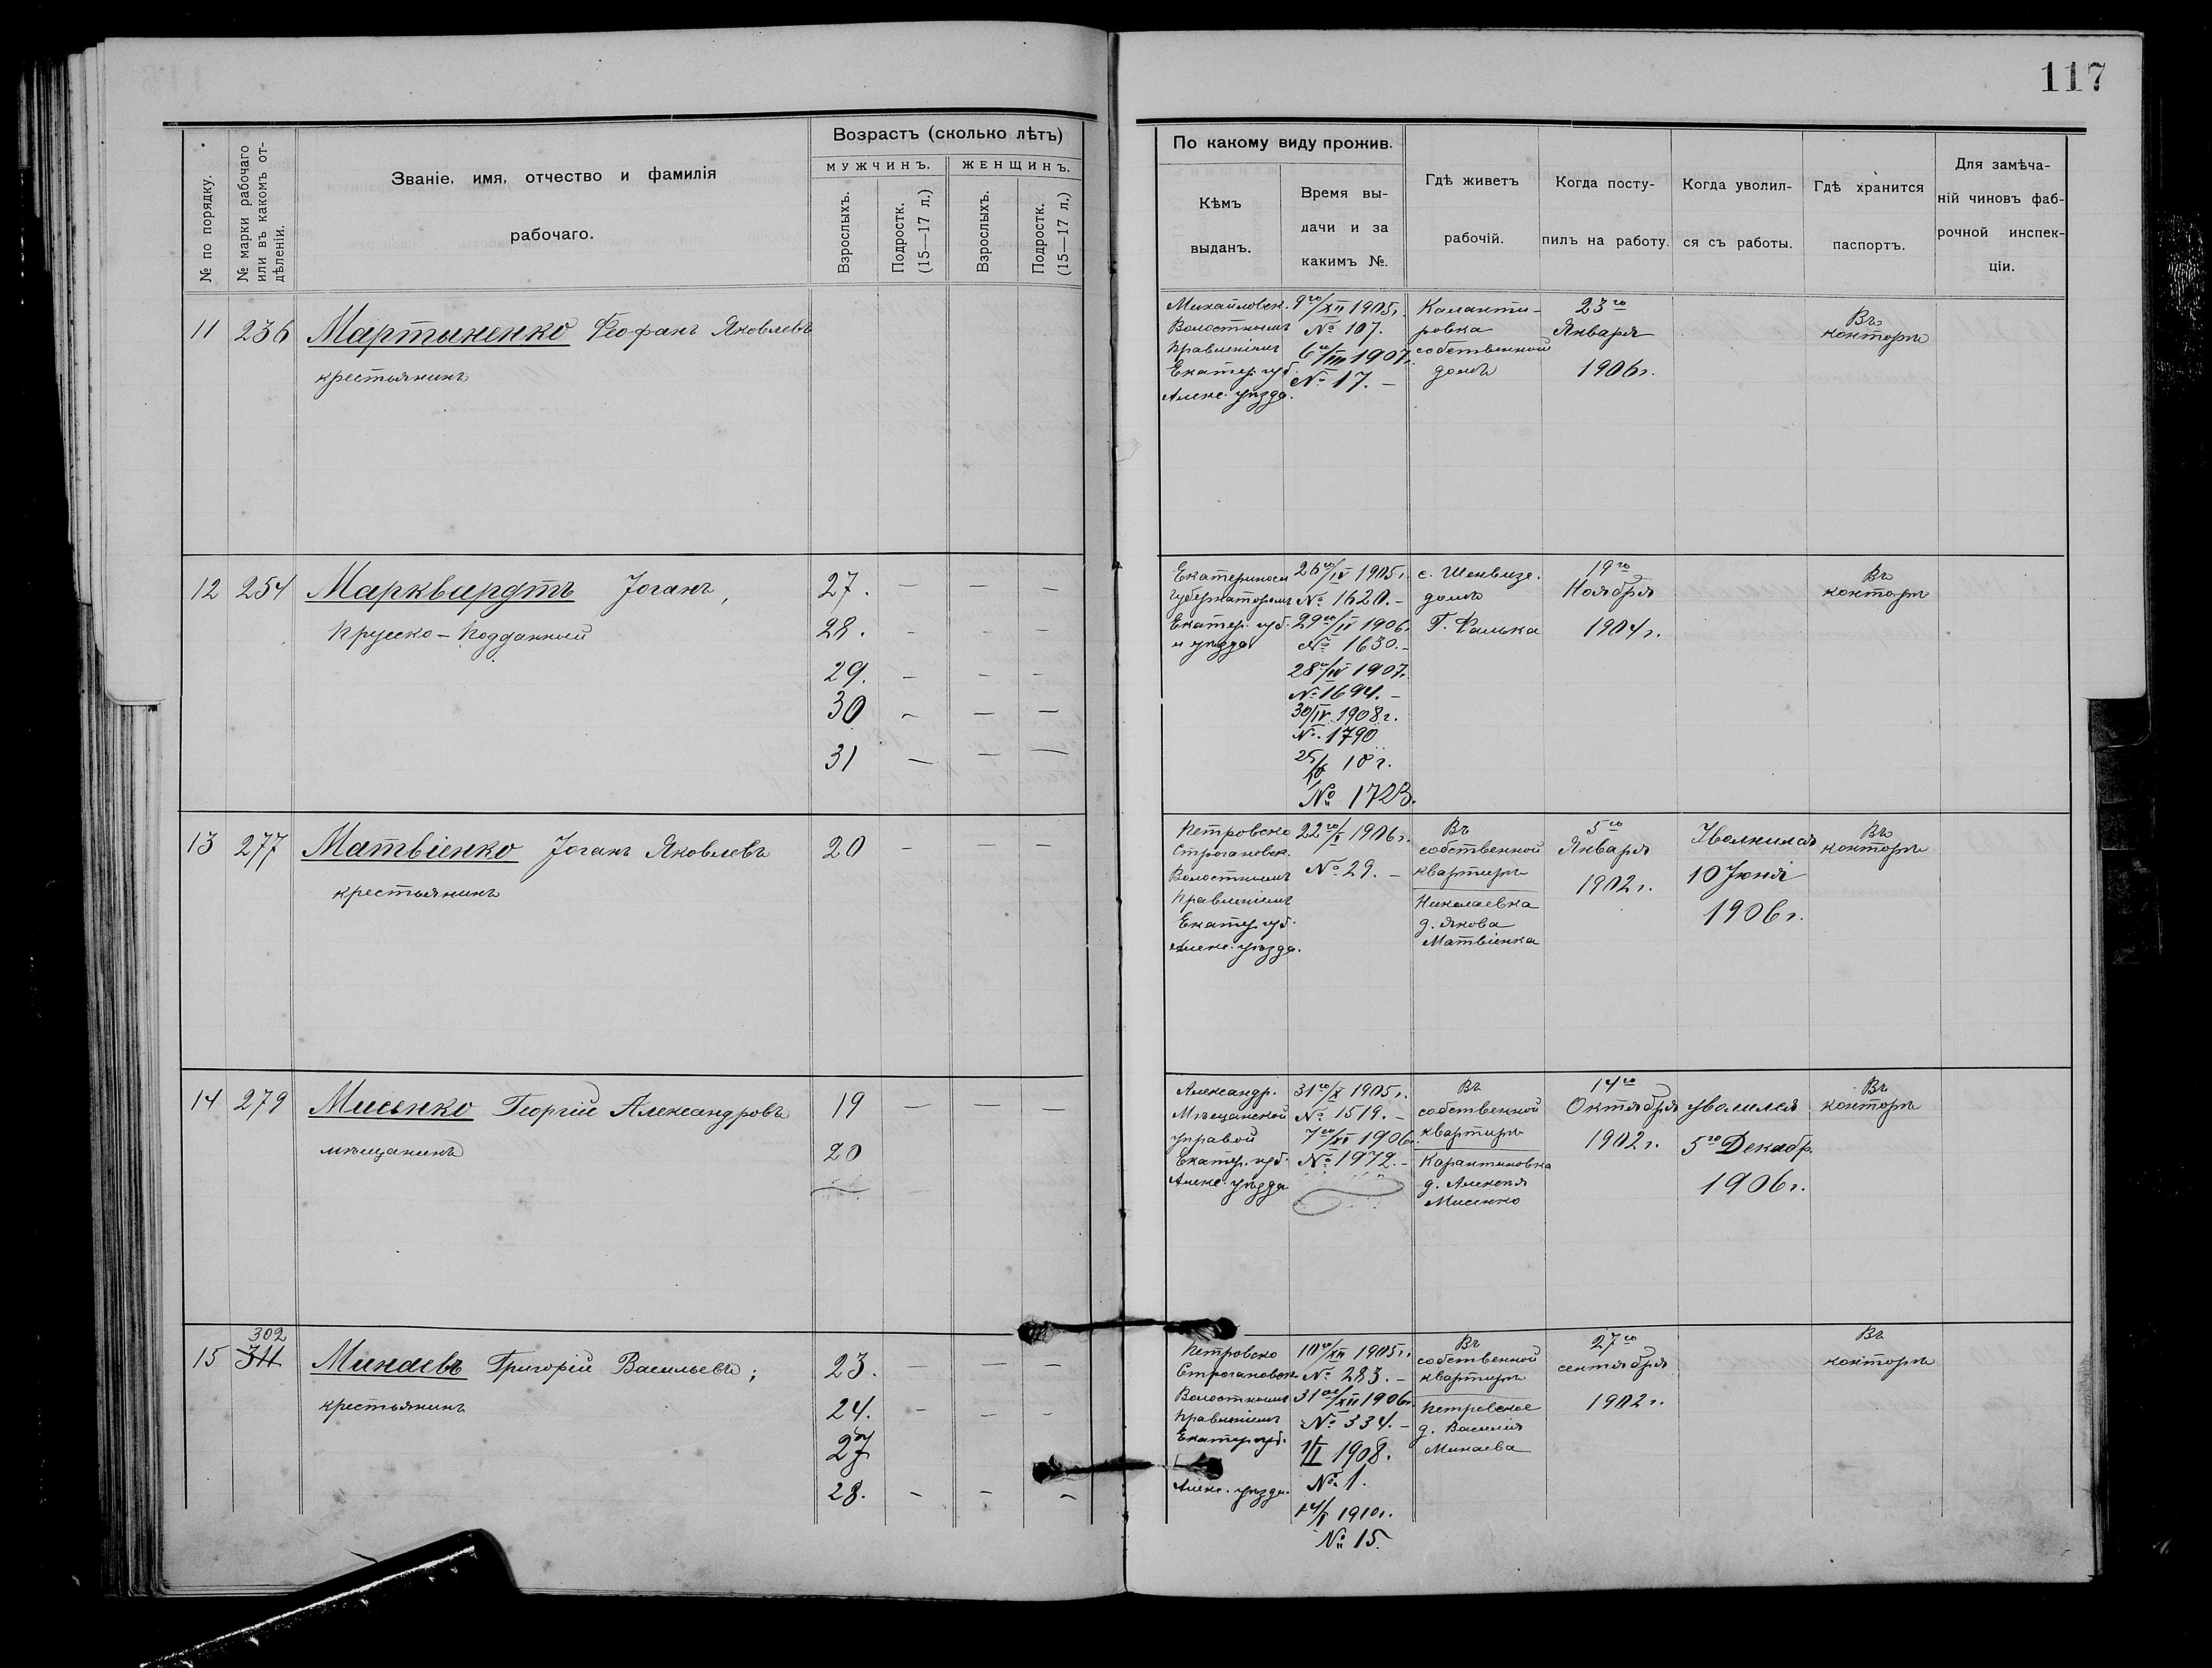 117
№ по порядку.
№ марки рабочаго
или въ какомъ от-
дѣленіи.
Званіе, имя, отчество и фамилія
рабочаго.
Возрастъ (сколько лѣтъ)
мужчинъ.
женщинъ.
Взрослыхъ.
Подростк.
(15—17 л.)
Взрослыхъ.
Подростк.
(15—17 л.)
По какому виду прожив.
Кѣмъ
выданъ.
Время вы-
дачи и за
какимъ №.
Гдѣ живетъ
рабочій.
Когда посту-
пилъ на работу.
Когда уволил-
ся съ работы.
Гдѣ хранится
паспортъ.
Для замѣча-
ній чиновъ фаб-
рочной инспек-
ціи.
11 236 Мартыненко Феофанъ Яковлевъ
крестьянинъ
Михайловск.
Волостнымъ
Правленіемъ
Екатер. губ.
Алекс. уѣзда.
9го/XII 1905г.
№ 107.
6го/III 1907г.
№ 17. –
Каланти-
ровка
собственной
домъ
23го
Января
1906г.
Въ
конторѣ
12 254 Марквардтъ Іоганъ,
Прусско-Подданный
27. — —
28. - — —
29. — — —
30 — — —
31 — — —
Екатериносл
Губернаторомъ
Екатер. губ.
и уѣзда
26го/IV 1905г.
№ 1620. –
29го/IV 1906г.
№ 1630. –
28го/IV 1907г.
№ 1694. –
30/IV 1908г.
№ 1790
25/ 10г.
№ 1723.
с. Шенвизе.
домъ
Г. Фалька
19го
Ноября
1904г.
Въ
конторѣ
13 277 Матвіенко Іоганъ Яковлевъ
крестьянинъ
20 — — —
Петровско
Строгановск.
Волостнымъ
Правленіемъ
Екатер. губ.
Алекс. уѣзда.
22го/I 1906г.
№ 29. –
Въ
собственной
квартирѣ
Николаевка
д. Якова
Матвіенка
5го
Января
1902г.
Уволился
10 Іюня
1906г.
Въ
конторѣ
14 279 Мисенко Георгій Александровъ
мѣщанинъ
19 — — —
20
Александр.
Мѣщанской
управой
Екатер. губ.
Алекс. уѣзда
31го/X 1905г.
№ 1519. –
7го/XI 1906г.
№ 1972. –
Въ
собственной
квартирѣ
Карантиновка
д. Алексѣя
Мисенко
14го
Октября
1902г.
уволился
5го Декабр.
1906г.
Въ
конторѣ
302
15 311 Минаевъ Григорій Васильевъ;
крестьянинъ
23. — — —
24. — — —
27
28. - - -
Петровско
Строгановск.
Волостнымъ
Правленіемъ
Екатер. губ.
Алекс. уѣзда.
10го/XII 1905г.
№ 283. –
31го/XII 1906г.
№ 334. –
1/II 1908.
№ 1.
14/I 1910г.
№ 15.
Въ
собственной
квартирѣ
Петровское
д. Василія
Минаева
27го
сентября
1902г.
Въ
конторѣ